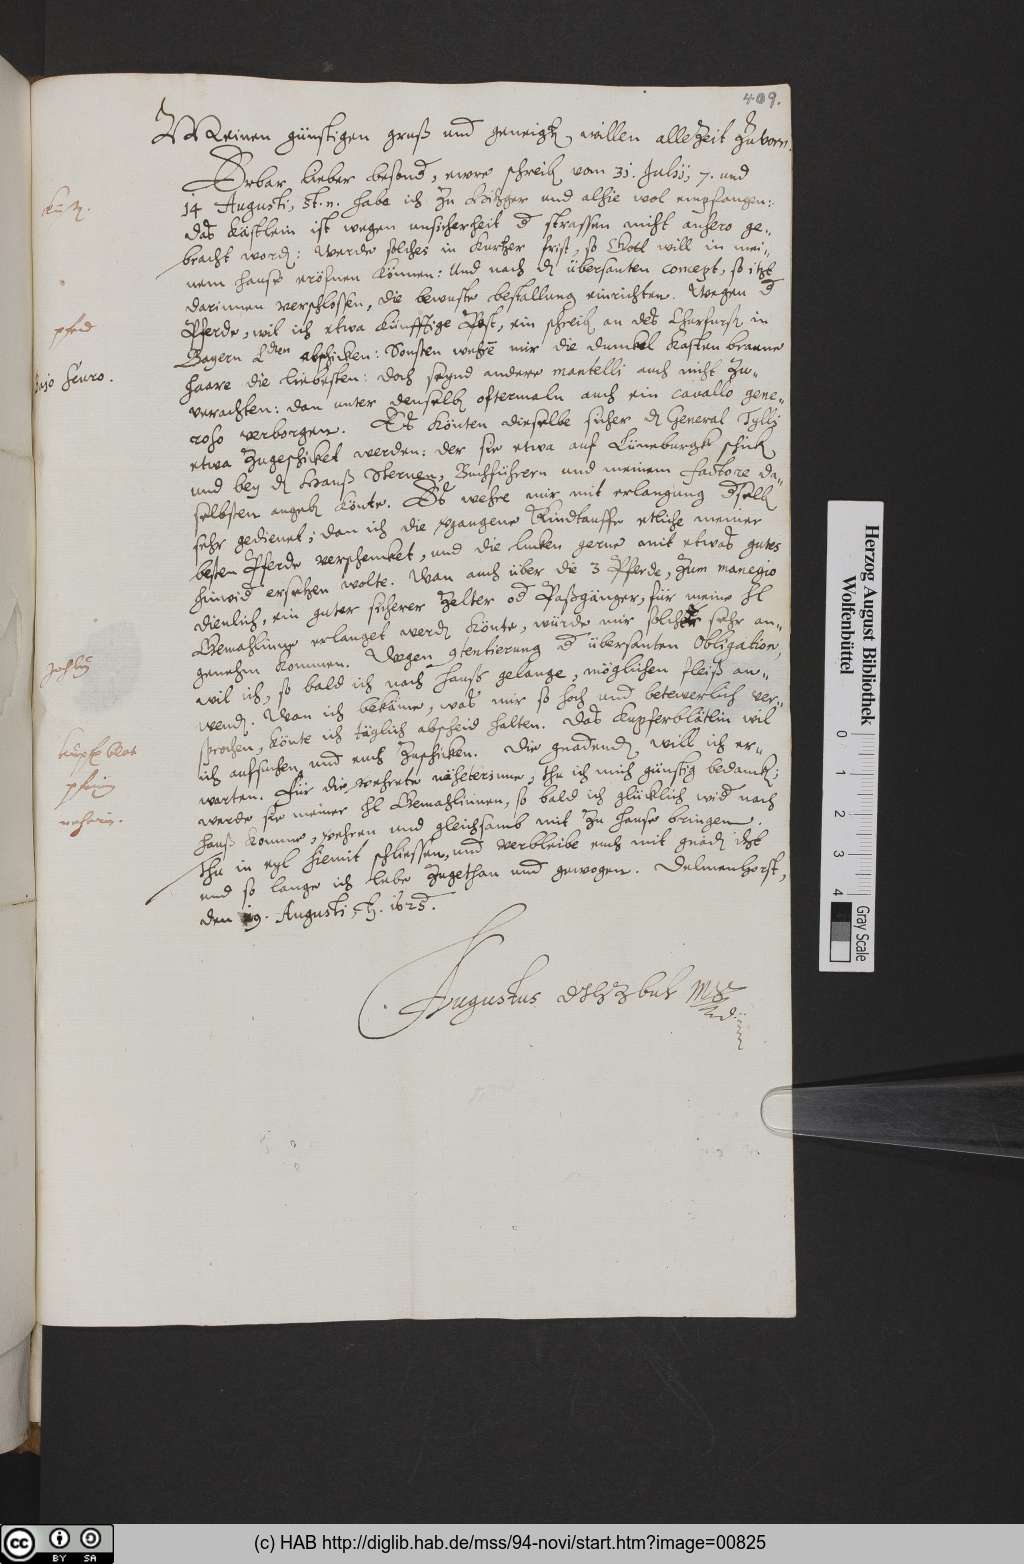 409.
Meinen günstigen gruß und geneigt willen allezeit zuvorn.
Erbar lieber besond, ewre schreib vom 31. Julij, 7. und
14 Augusti, st. n. habe ich zu Hitzger und alhie wol empfangen:
das kästlein ist wegen unsicherheit d strassen nicht anhero ge-
bracht word: Werde solches in kurtzer frist, so Gott will in mei-
nem hause eröfnen können: Und nach d übersanten concept, so itzt
darinnen verschlossen, die bewuste bestallung einrichten. Wegen d
Pferde, wil ich etwa künfftige Post, ein schreib an des Churfurst in
Bayern Lden abschicken: Sonsten wehre mir die dunckel kasten braune
haare die liebesten: doch seynd andere mantelli auch nicht zu-
verachten: dan unter denselb oftermaln auch ein cavallo gene-
roso verborgen. Es könten dieselbe sicher d General Tylly
etwa zugeschicket werden: der sie etwa auf Lüneburgk schick
und bey d Hanß Sternen, Buchführern und meinem factore da-
selbsten angeb könte. Es wehre mir mit erlangung dselb
sehr gedienet; dan ich die vergangene Kindtauffe etliche meiner
besten Pferde verschencket, und die lucken gerne mit etwas gutes
hinwid ersetzen wolte. Wan auch über die 3 Pferde, zum manegio
dienlich, ein guter sicherer Zelter od Paßgänger, für meine hl
Gemahlinne erlanget werd könte, würde mir solches sehr an-
genehm kommen. Wegen contentierung d übersanten Obligation,
wil ich, so bald ich nach hauß gelange, möglichen fleiß an-
wend. Wan ich bekäme, was mir so hoch und betewerlich ver-
sprochen, könte ich täglich abscheid halten. Das kupferblätlin wil
ich aufsuchen und euch zuschicken. Die gnadend, will ich er-
warten. Für die verehrete näheterinne, thu ich mich günstig bedanck;
werde sie meiner hl Gemahlinnen, so bald ich glücklich wid nach
hauß komme, verehren und gleichsamb mit zu hause bringen.
Thu in eyl hiemit schliessen, und verbleibe euch mit gnad itzt
und so lange ich lebe zugethan und gewogen. Delmenhorst,
den 19. Augusti, 1625.
Augustus
pferd
kupfer blat
Herzog August Bibliothek
Wolfenbüttel
0 1 2 3 4
Gray Scale
CC BY SA
(c) HAB http://diglib.hab.de/mss/94-novi/start.htm?image=00825